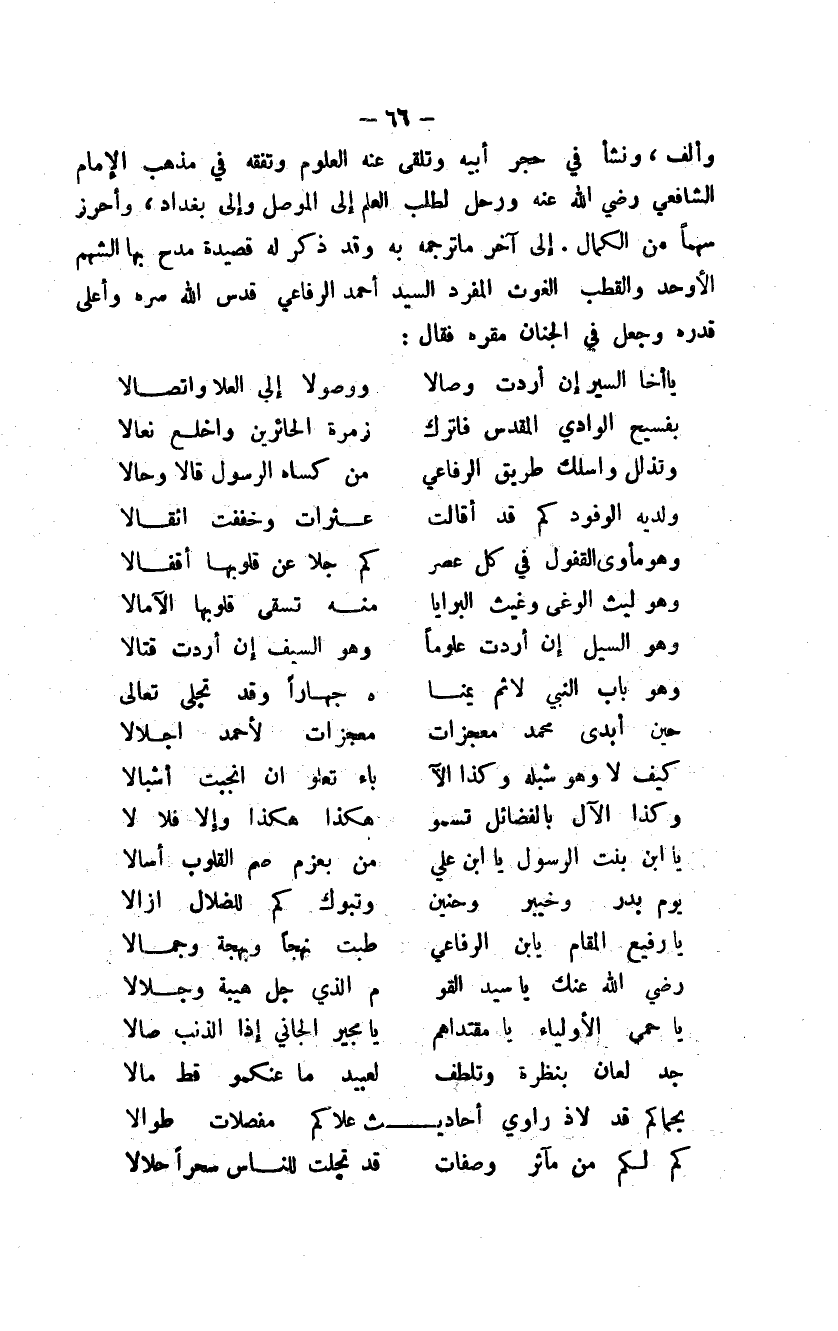 – ٦٦ –
وألف، ونشأ في حجر أبيه وتلقى عنه العلوم وتفقه في مذهب الإمام
الشافعي رضي الله عنه ورحل لطلب العلم إلى الموصل وإلى بغداد، وأحرز
سهماً من الكمال. إلى آخر ماترجمه به وقد ذكر له قصيدة مدح بها الشهم
الأوحد والقطب الغوث المفرد السيد أحمد الرفاعي قدس الله سره وأعلى
قدره وجعل في الجنان مقره فقال :
ياأخا السير إن أردت وصالا ووصولا إلى العلا واتصـالا
بفسيح الوادي المقدس فاترك زمرة الحائرين واخلـع نعالا
وتذلل واسلك طريق الرفاعي من كساه الرسول قالا وحالا
ولديه الوفود كم قد أقالت عـثرات وخففت اثقـالا
وهو مأوى القفول في كل عصر كم جلا عن قلوبهـا أقفـالا
وهو ليث الوغى وغيث البرايا منـه تسقى قلوبها الآمالا
وهو السيل إن أردت علوماً وهو السيف إن أردت قتالا
وهو باب النبي لاثم يمنـا ه جهـاراً وقد تجلى تعالى
حين أبدى محمد معجزات معجزات لأحمد اجـلالا
كيف لا وهو شبله وكذا الآ باء تعلو ان انجبت أشبالا
وكذا الآل بالفضائل تسمو هكذا هكذا وإلا فلا لا
يا ابن بنت الرسول يا ابن علي من بعزم صم القلوب أسالا
يوم بدر وخيبر وحنين وتبوك كم للضلال ازالا
يا رفيع المقام يابن الرفاعي طبت نهجاً وبهجة وجمـالا
رضي الله عنك يا سيد القو م الذي جل هيبة وجـلالا
يا حمى الأولياء يا مقتداهم يا مجير الجاني إذا الذنب صالا
جد لعان بنظرة وتلطف لعبيد ما عنكمو قط مالا
بحماكم قد لاذ راوي أحاديـث علاكم مفصلات طوالا
كم لكم من مآثر وصفات قد تجلت للنـاس سحراً حلالا